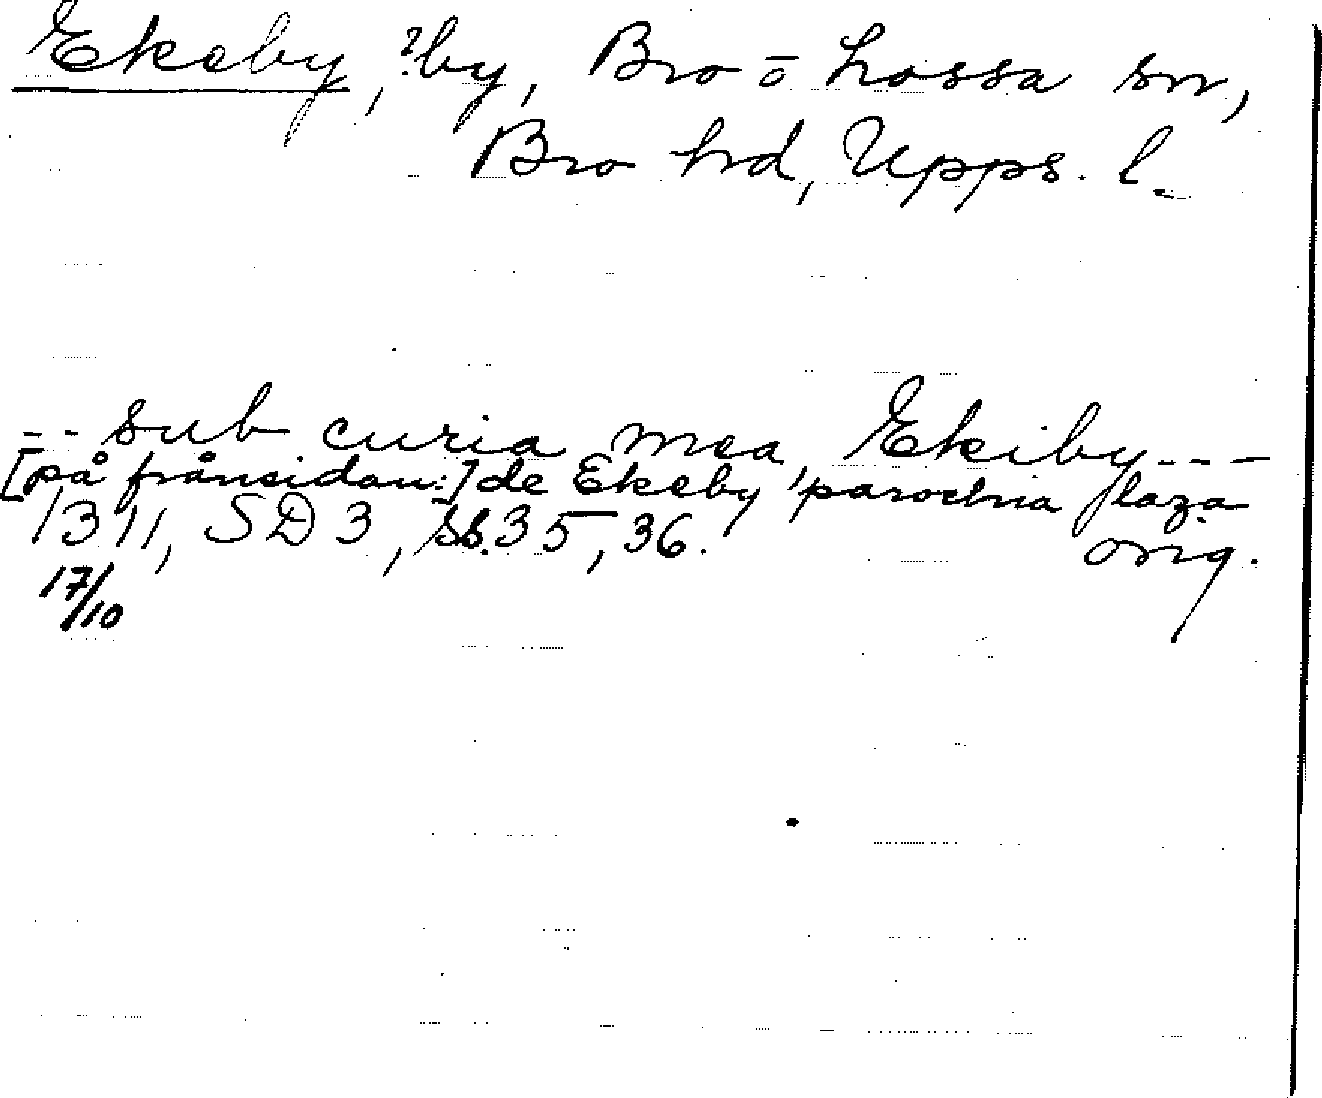 Ekeby, ?by, Bro o Lossa sn,
Bro hd, Upps. l.
-- sub curia mea, Ekiby ---
[på frånsidan:] de Ekeby parochia flaza
1311, SD 3, ss. 35, 36. orig.
17/10